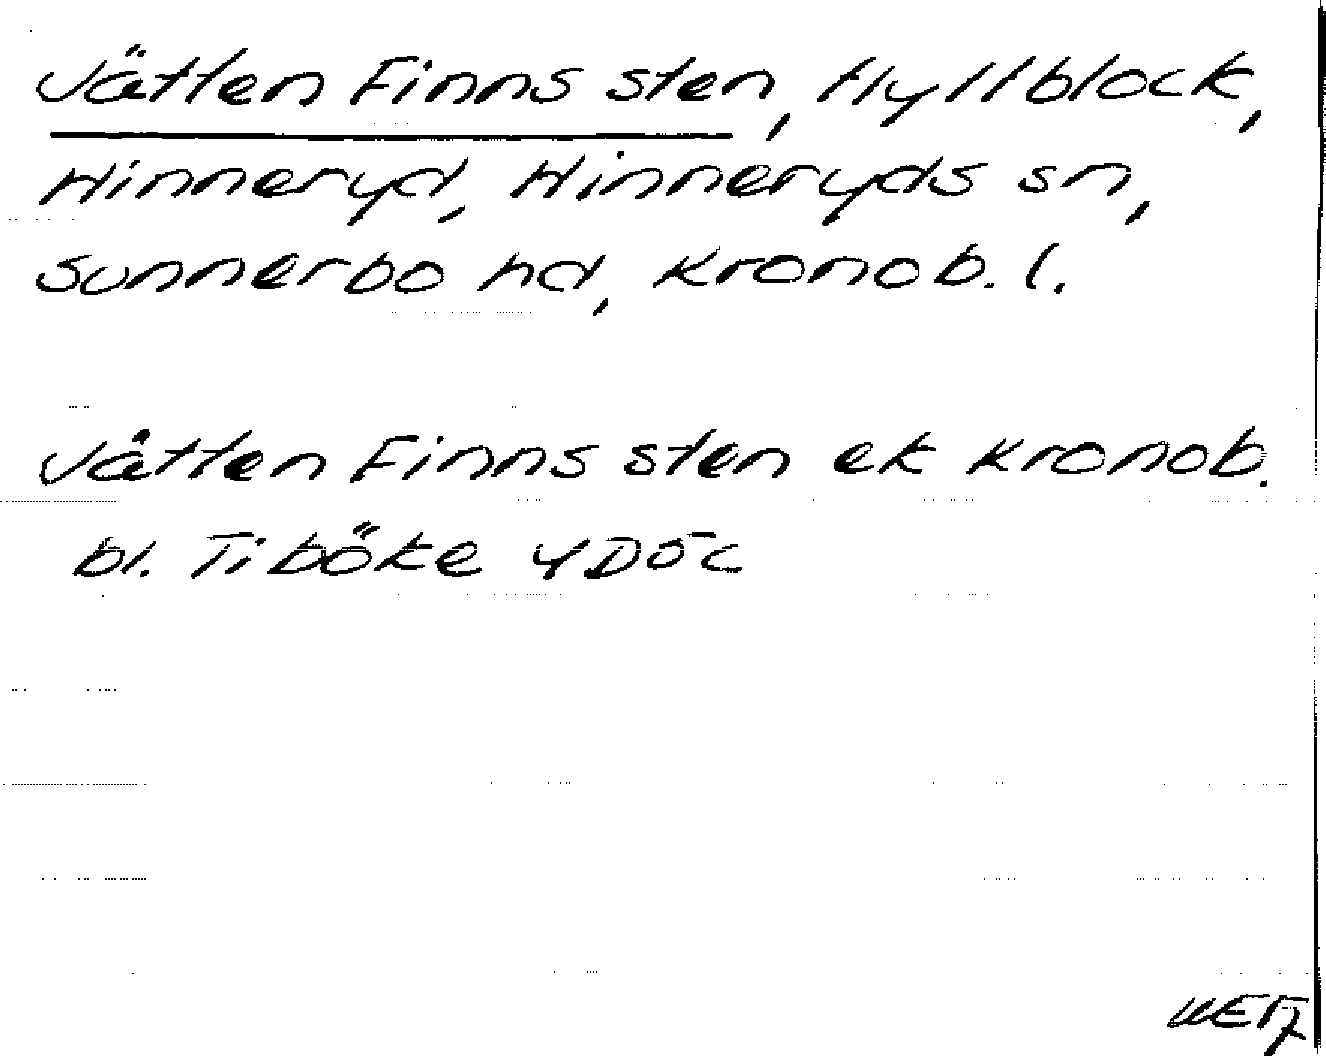 Jätten Finns sten, Flyttblock,
Hinneryd, Hinneryds sn,
Sunnerbo hd, Kronob. l.
Jätten Finns sten ek Kronob.
bl. Tiböke 4D5c